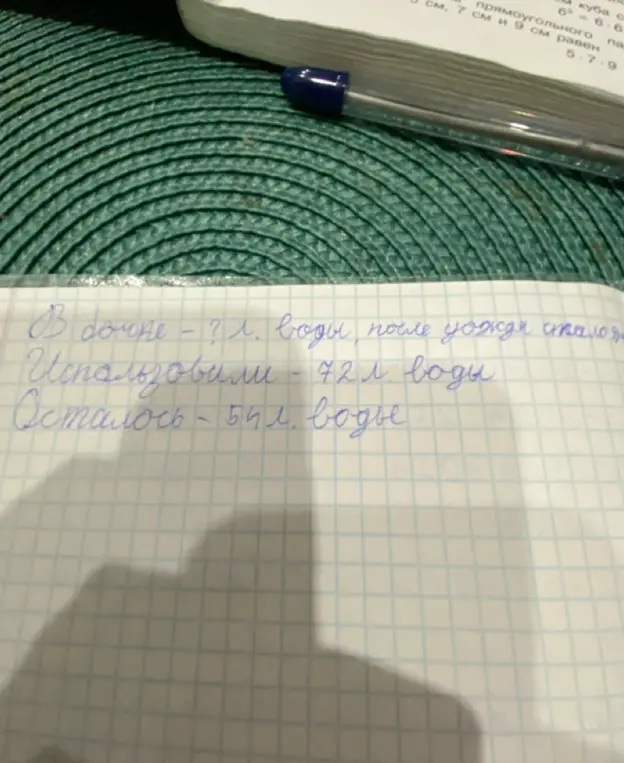 куба с
6³ = 6·6
прямоугольного па
см, 7 см и 9 см равен
5·7·9
В бочке - ? л. воды, после дождя стало
Использовали - 72 л воды
Осталось - 54 л. воды